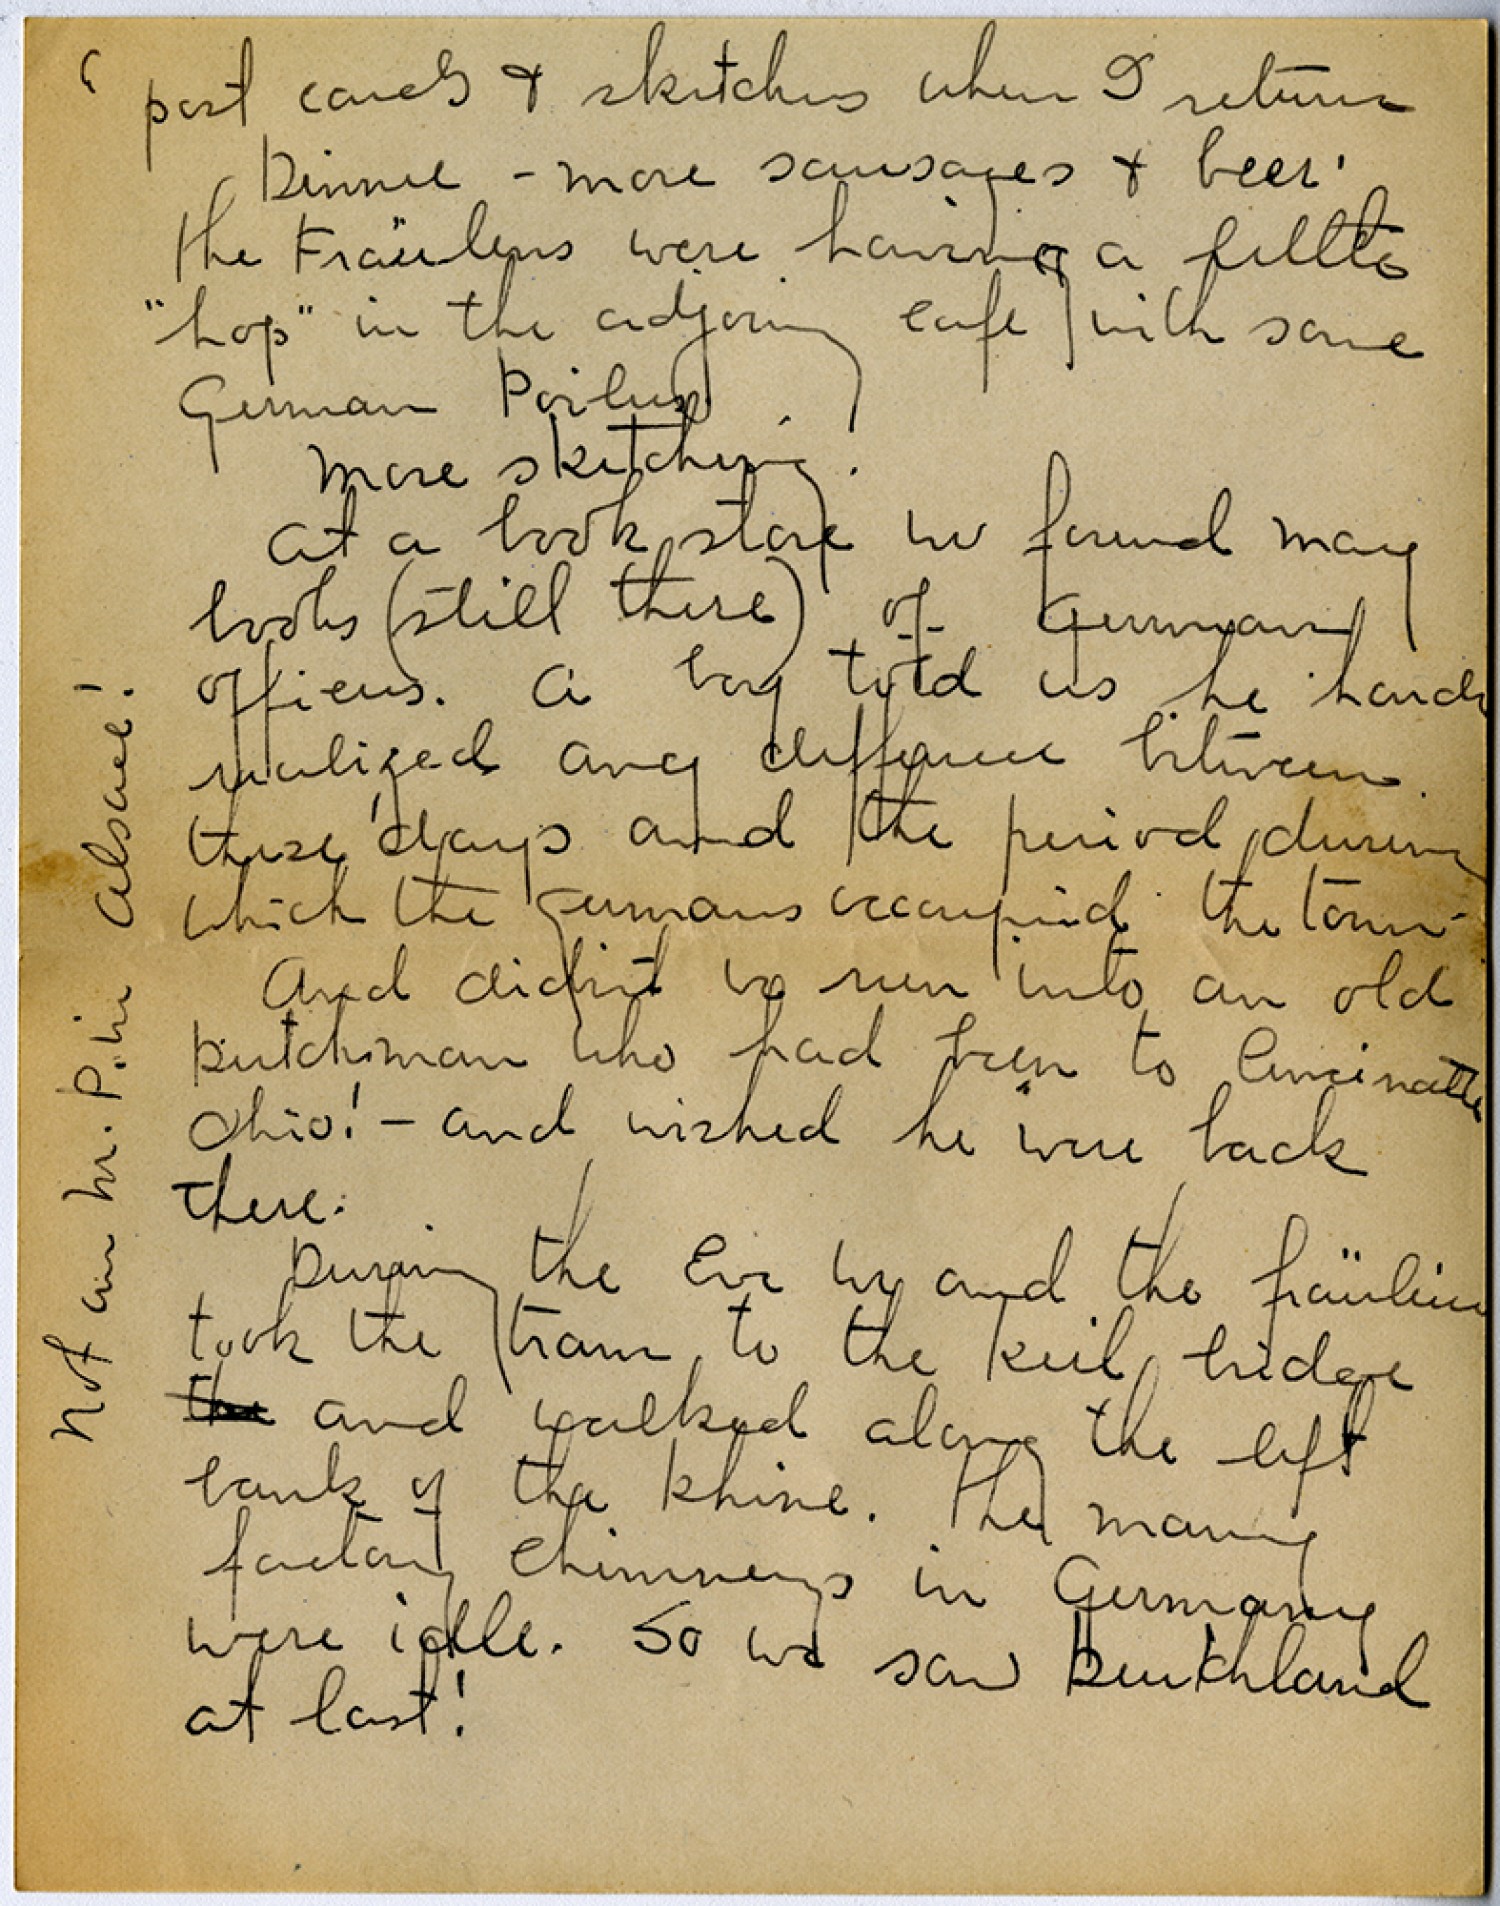 post cards & sketches when I return
Dinner - more sausages & beer.
the Fräulens were having a little
"hop" in the adjoing cafe with some
German Poilus
more sketching.
at a book store we found many
books (still there) of German
officers. a boy told us he hardly
realized any difference between
these days and the period during
which the germans occupied the town.
And didn't we run into an old
Dutchman who had been to Cincinatti
Ohio! - and wished he were back
there.
During the Eve we and the fräulein
took the tram to the Keil bridge
and walked along the left
bank of the Rhine. The many
factory chimneys in Germany
were idle. So we saw Deutchland
at last!
Not an M.P. in Alsace!